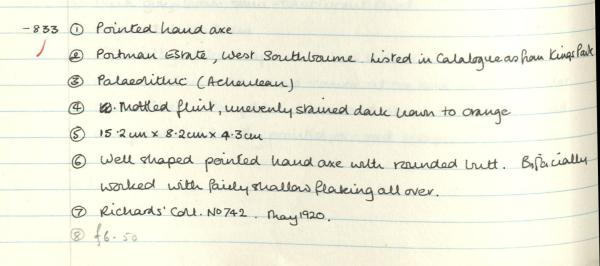 -833 ① Pointed hand axe
② Portman Estate, West Southbourne. Listed in Catalogue as from Kings Park
③ Palaeolithic (Acheulean)
④ Mottled flint, unevenly stained dark brown to orange
⑤ 15.2cm x 8.2cm x 4.3cm
⑥ Well shaped pointed hand axe with rounded butt. Bifacially
worked with fairly shallow flaking all over.
⑦ Richards' Coll. No 742. May 1920.
⑧ £6.50